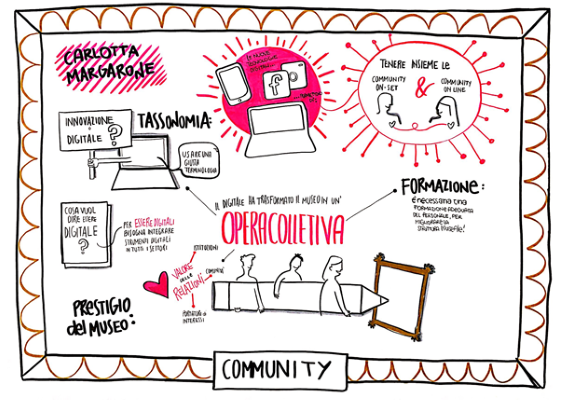 CARLOTTA
MARGARONE
LE NUOVE
TECNOLOGIE
DIGITALI
TENERE INSIEME LE
COMMUNITY
ON-SITE
&
COMMUNITY
ON LINE
INNOVAZIONE
+
DIGITALE
?
TASSONOMIA:
USARE UNA
GIUSTA
TERMINOLOGIA
COSA VUOL
DIRE ESSERE
DIGITALE
?
PER ESSERE DIGITALI
BISOGNA INTEGRARE
STRUMENTI DIGITALI
IN TUTTI I SETTORI
IL DIGITALE HA TRASFORMATO IL MUSEO IN UN'
OPERACOLLETIVA
FORMAZIONE:
È NECESSARIA UNA
FORMAZIONE ADEGUATA
DEL PERSONALE, PER
MIGLIORARE LA
STRUTTURA
ISTITUZIONI
VALORE
DELLE
RELAZIONI
COMUNITÀ
PORTATORI DI
INTERESSI
PRESTIGIO
del MUSEO:
COMMUNITY